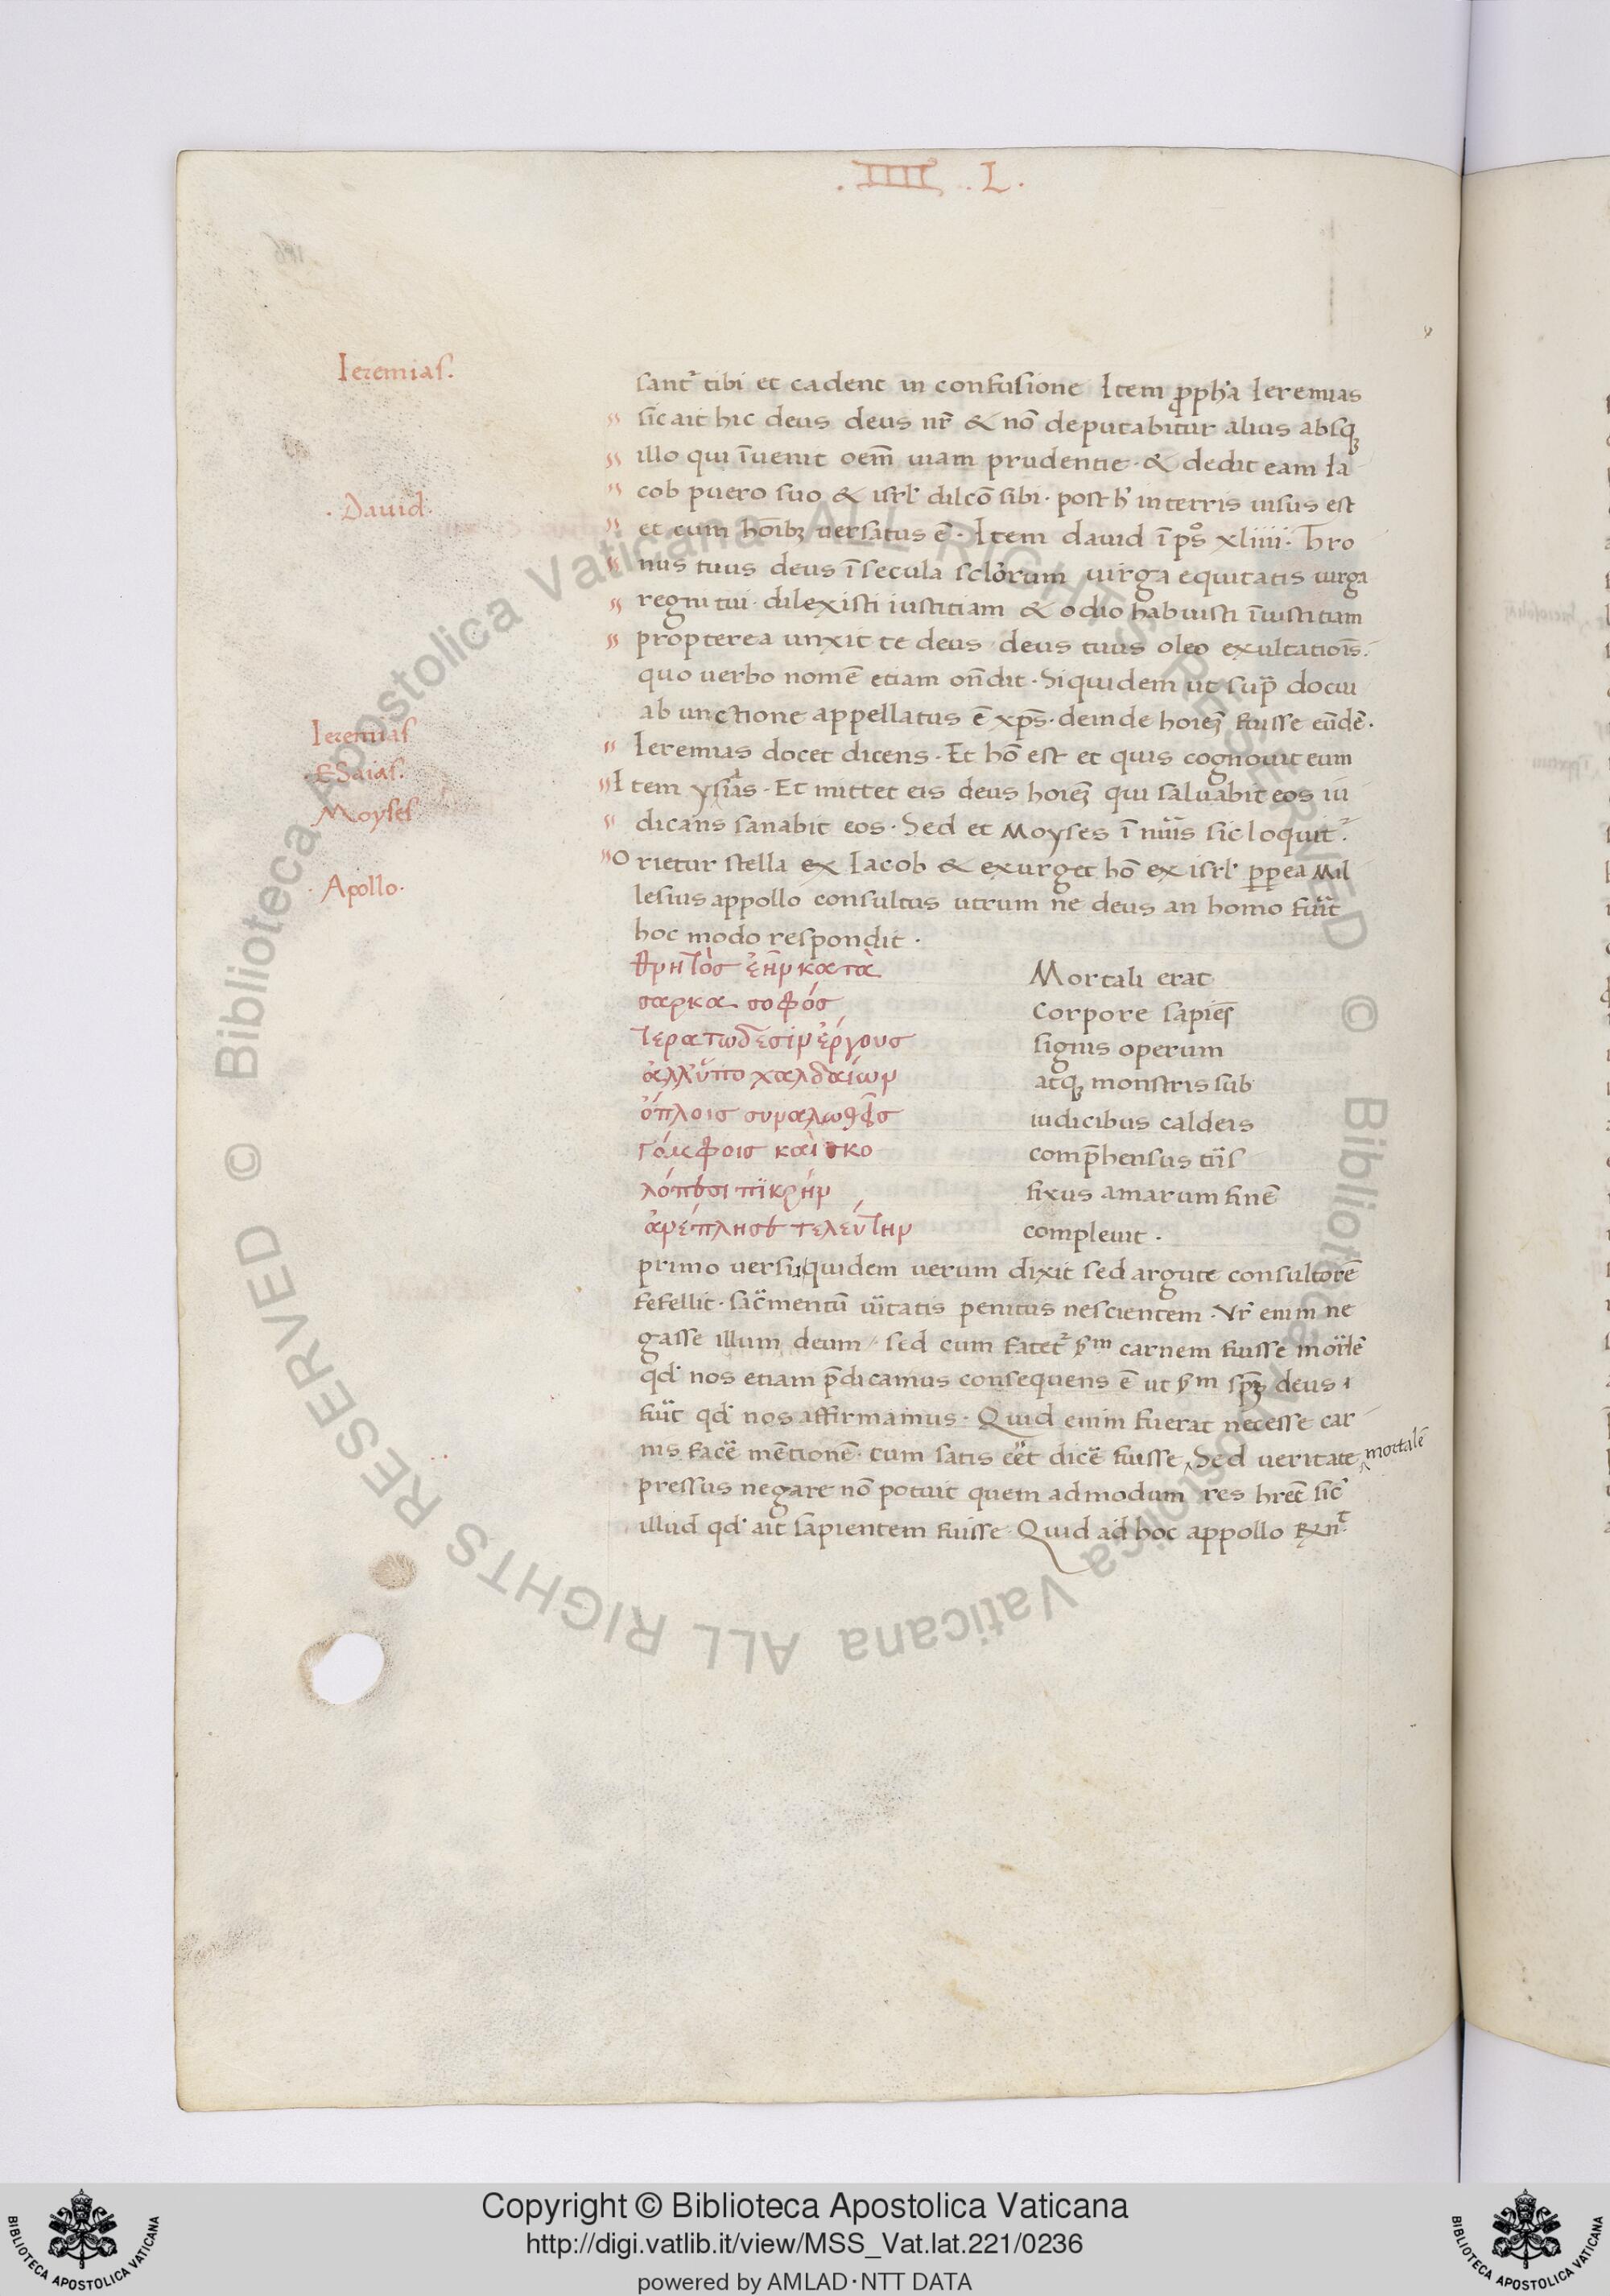 . IIII . L .
Ieremias.
sant᷑ tibi et cadent in confusione Item ꝓph̃a Ieremias
sic ait hic deus deus nr̃ & nõ deputabitur alius absqꝫ
illo qui ĩuenit oem̃ uiam prudentie · & dedit eam Ia
cob puero suo & isrl' dilcõ sibi · post h' in terris uisus est
. Dauid.
et cum hoĩbꝫ uersatus ẽ · Item dauid ĩ ps° xliiii · Thro
nus tuus deus ĩ secula sclõrum uirga equitatis uirga
regni tui · dilexisti iustitiam & odio habuisti ĩiustitiam
propterea unxit te deus deus tuus oleo exultatiõis.
quo uerbo nomẽ etiam on̄dit · Siquidem ut sup̃ docui
ab unctione appellatus ẽ xp̃s · deinde hoieꝫ fuisse eũdẽ ·
Ieremias
Ieremias docet dicens · Et hõ est et quis cognouit eum
· ESaias.
Item ysaias · Et mittet eis deus hoieꝫ qui saluabit eos iu
Moyses
dicans sanabit eos · Sed et Moyses ĩ nũis sic loquit᷑
Orietur stella ex Iacob & exurget hõ ex isrl' ꝓpea Mil
· Apollo ·
lesius appollo consultus utrum ne deus an homo fũit
hoc modo respondit ·
θρηΤὸσ ἐῆρ κατὰ Mortali erat
σαρκα σοφόσ corpore sapiẽs
Τερατωδεσὶν ἔργουσ signis operum
ἀλλ̓ ὕπο χαλδαίων atqꝫ monstris sub
ὅπλοισ συναλωθεὶσ iudicibus caldeis
γόμφοισ καὶ σκο comp̃hensus tũs
λόπεσι πϊκρὴν fixus amarum finẽ
ἀνέπλησε τελεύΤην compleuit ·
primo uersu quidem uerum dixit sed argute consultorẽ
fefellit · sac̃mentũ ũitatis penitus nescientem · Vr̃ enim ne
gasse illum deum / sed cum fatet᷑ ꝟm carnem fuisse mor̃lẽ
qd' nos etiam p̃dicamus consequens ẽ ut ꝟm sp̃ꝫ deus
fũit qd' nos affirmamus · Quid enim fuerat necesse car
nis facẽ mẽtionẽ · cum satis eẽt dicẽ fuisse ‸ Sed ueritate ‸ mortalẽ
pressus negare nõ potuit quem admodum res hret̃ sic᷑
illud qd' ait sapientem fuisse · Quid ad hoc appollo
Copyright © Biblioteca Apostolica Vaticana
http://digi.vatlib.it/view/MSS_Vat.lat.221/0236
powered by AMLAD·NTT DATA
BIBLIOTECA APOSTOLICA VATICANA
BIBLIOTECA APOSTOLICA VATICANA
© Biblioteca Apostolica Vaticana ALL RIGHTS RESERVED © Biblioteca Apostolica Vaticana ALL RIGHTS RESERVED